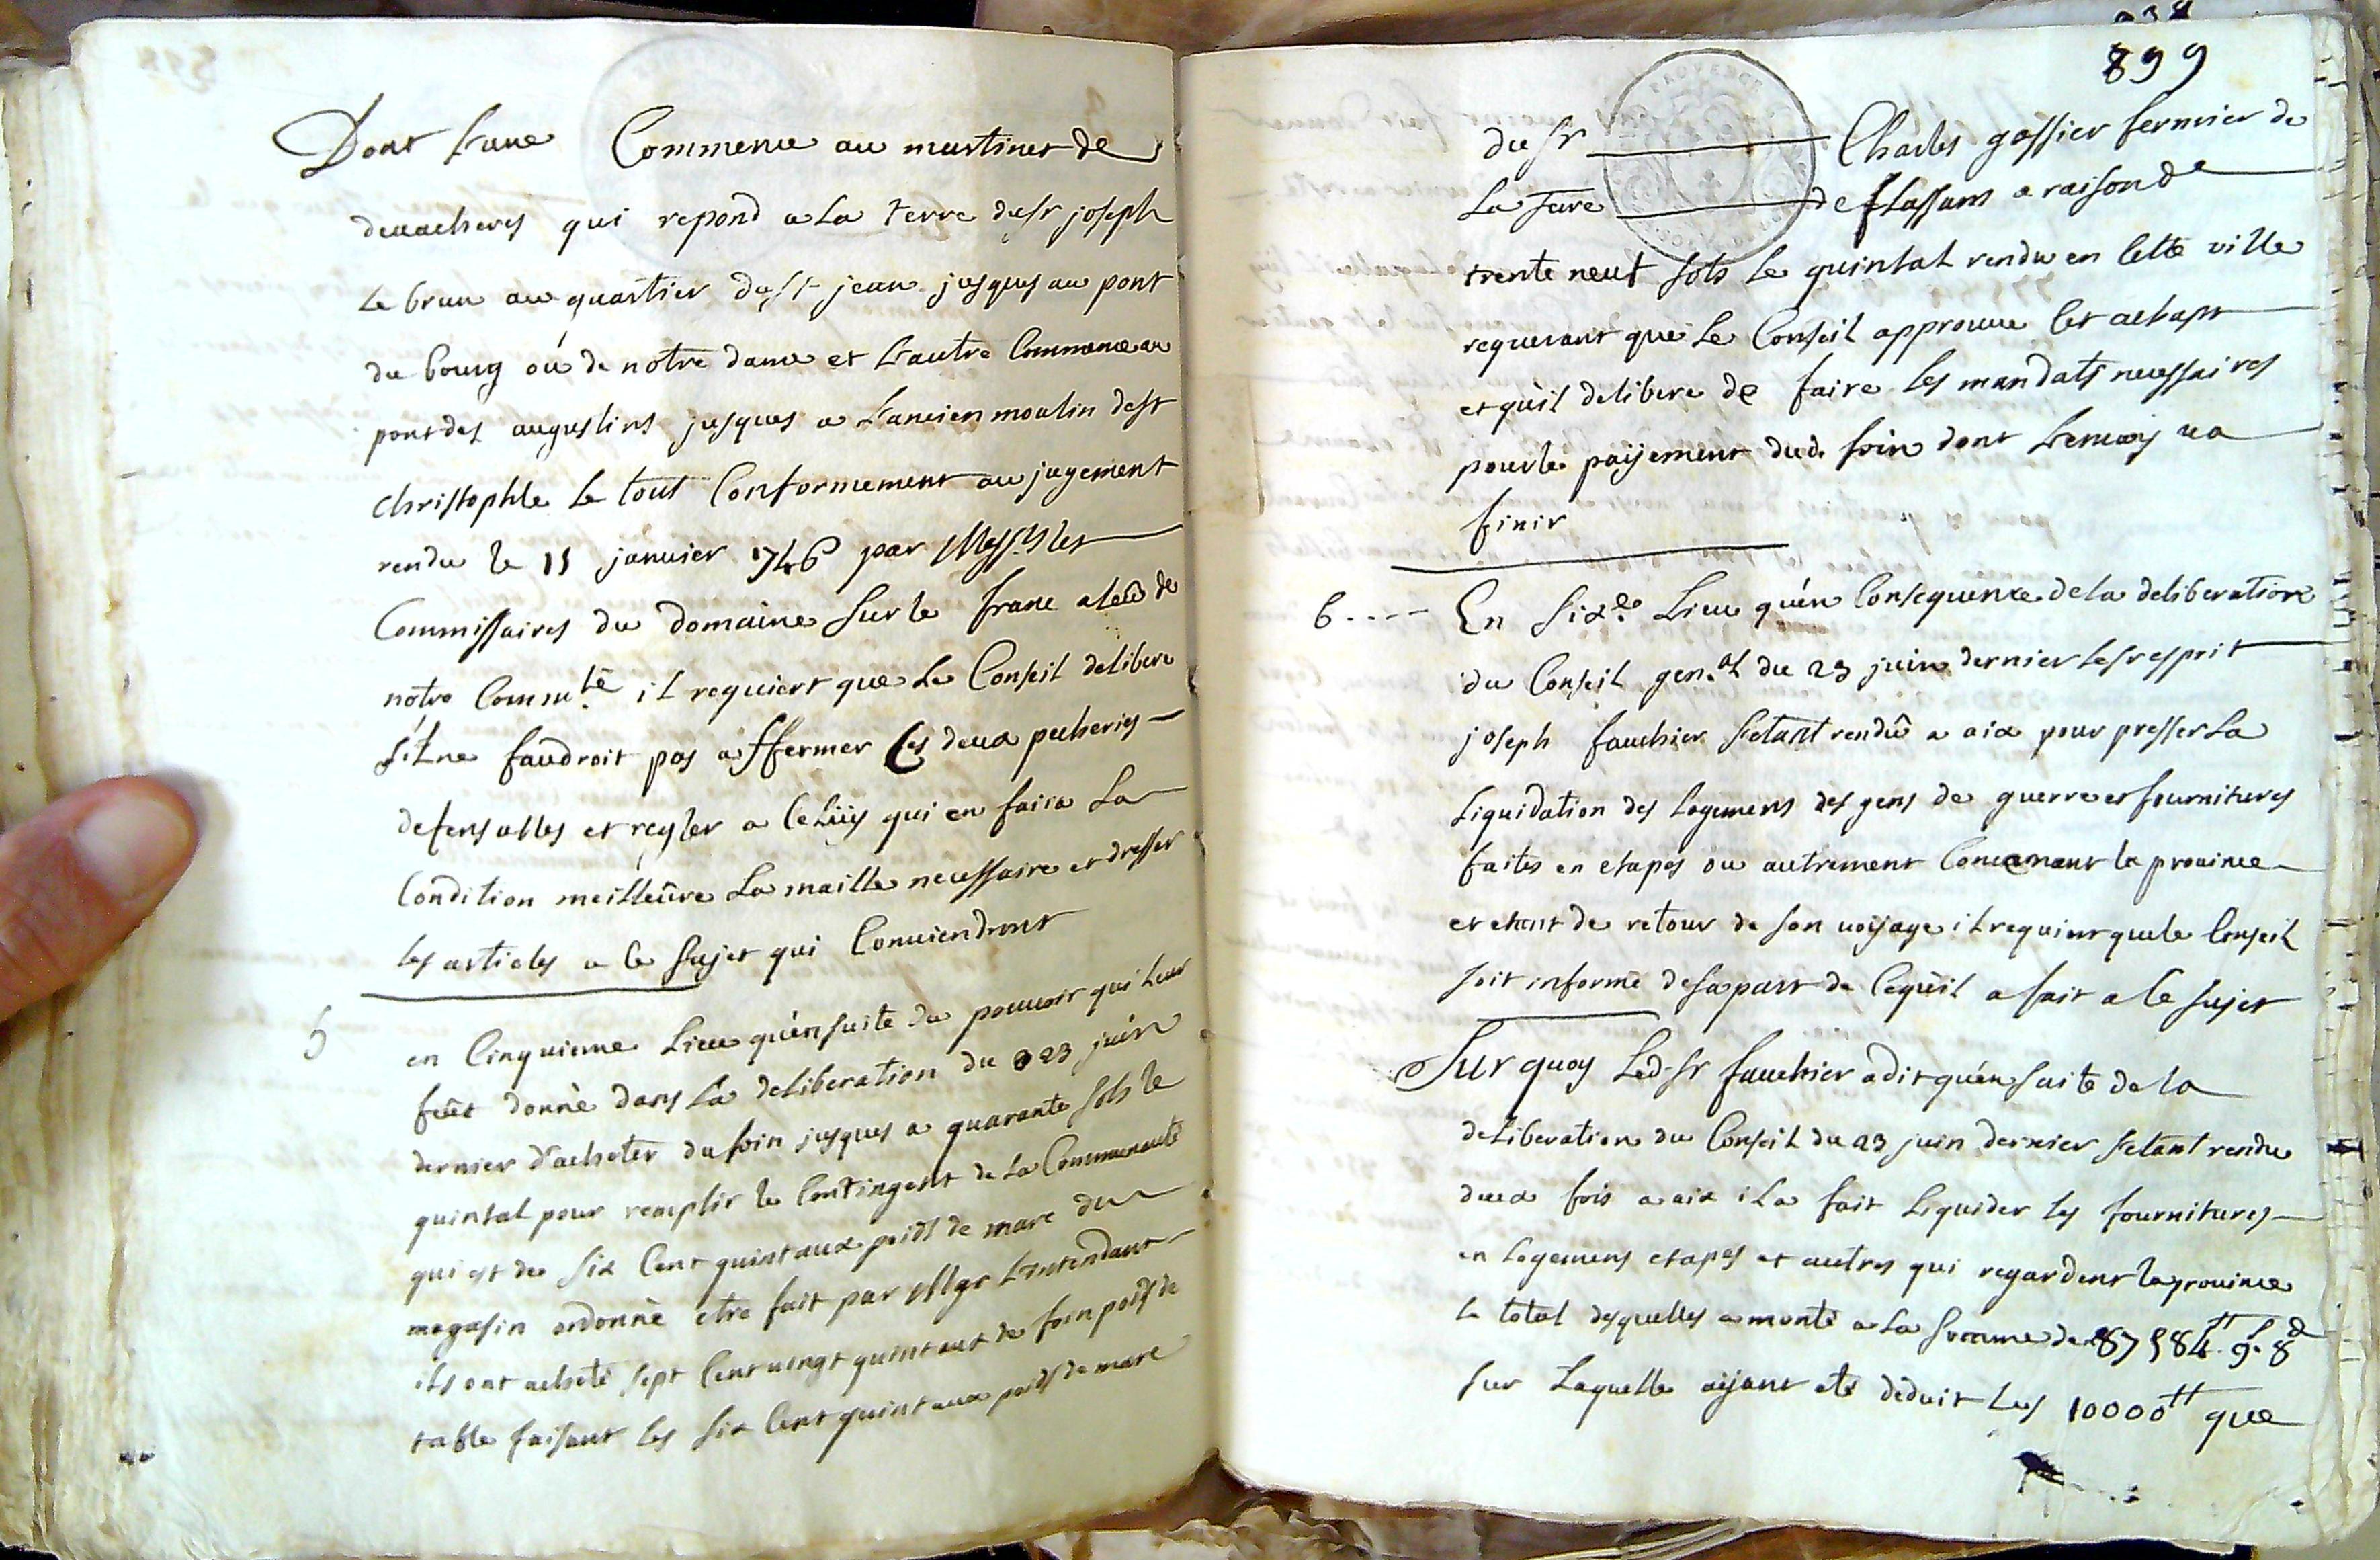 Dont L'une Commence au martinet de
deuacheres qui repond a La terre du sr joseph
Le brun au quartier du st jean jusques au pont
du bourg où de notre dame et L'autre Commence au
pont des augustins jusques a L'ancien moulin de st
christophle Le tout Conformement au jugement
rendu le 15 januier 1746 par Messrs les
Commissaires du domaine sur le franc aleû de
nôtre Commu.té il requiert que Le Conseil delibere
s'il ne faudroit pas affermer Ces deux pecheries
defensables et regler a Celüy qui en faira La
Condition meilleûre La maille necessaire et dresser
les articles a Ce sujet qui Conuiendront
5
en Cinquieme Lieu qu'en suite du pouuoir qui Leur
feût donnè dans La deliberation du 23 juin
dernier d'acheter du foin jusques a quarante sols le
quintal pour remplir le Contingent de La Communauté
qui est de six Cent quintaux poids de marc du
magasin ordonnè etre fait par Mgr L'intendant
ils ont acheté sept Cent uingt quintaux de foin poids de
table faisant les six Cent quintaux poids de marc
899
du sr Charles gassier fermier de
La Terre de flassans a raison de
trente neuf sols Le quintal rendu en Cette ville
requerant que Le Conseil approuue Cet achapt
et qu'il delibere de faire Les mandats necessaires
pour le paÿement dud. foin dont L'enuoy ua
finir
6 - - - - En six.e Lieu qu'en Consequence de la deliberation
du Conseil gen.al du 23 juin dernier le sr esprit
joseph fauchier s'etant rendû a aix pour presser La
Liquidation des Logemens des gens de guerre et fournitures
faites en etapes ou autrement Concernant la prouince
et etant de retour de son uoÿage il requiert que le Conseil
soit informé de sa part de Ce qu'il a fait a Ce sujet
Sur quoy Led. sr fauchier a dit qu'en suite de la
deliberation du Conseil du 23 juin dernier s'etant rendu
deux fois a aix il a fait Liquider Les fournitures
en Logemens etapes et autres qui regardent la prouince
Le total desquelles a monté a La somme de 87584tt 9s 8d
sur Laquelle aÿant eté déduit Les 10000tt que